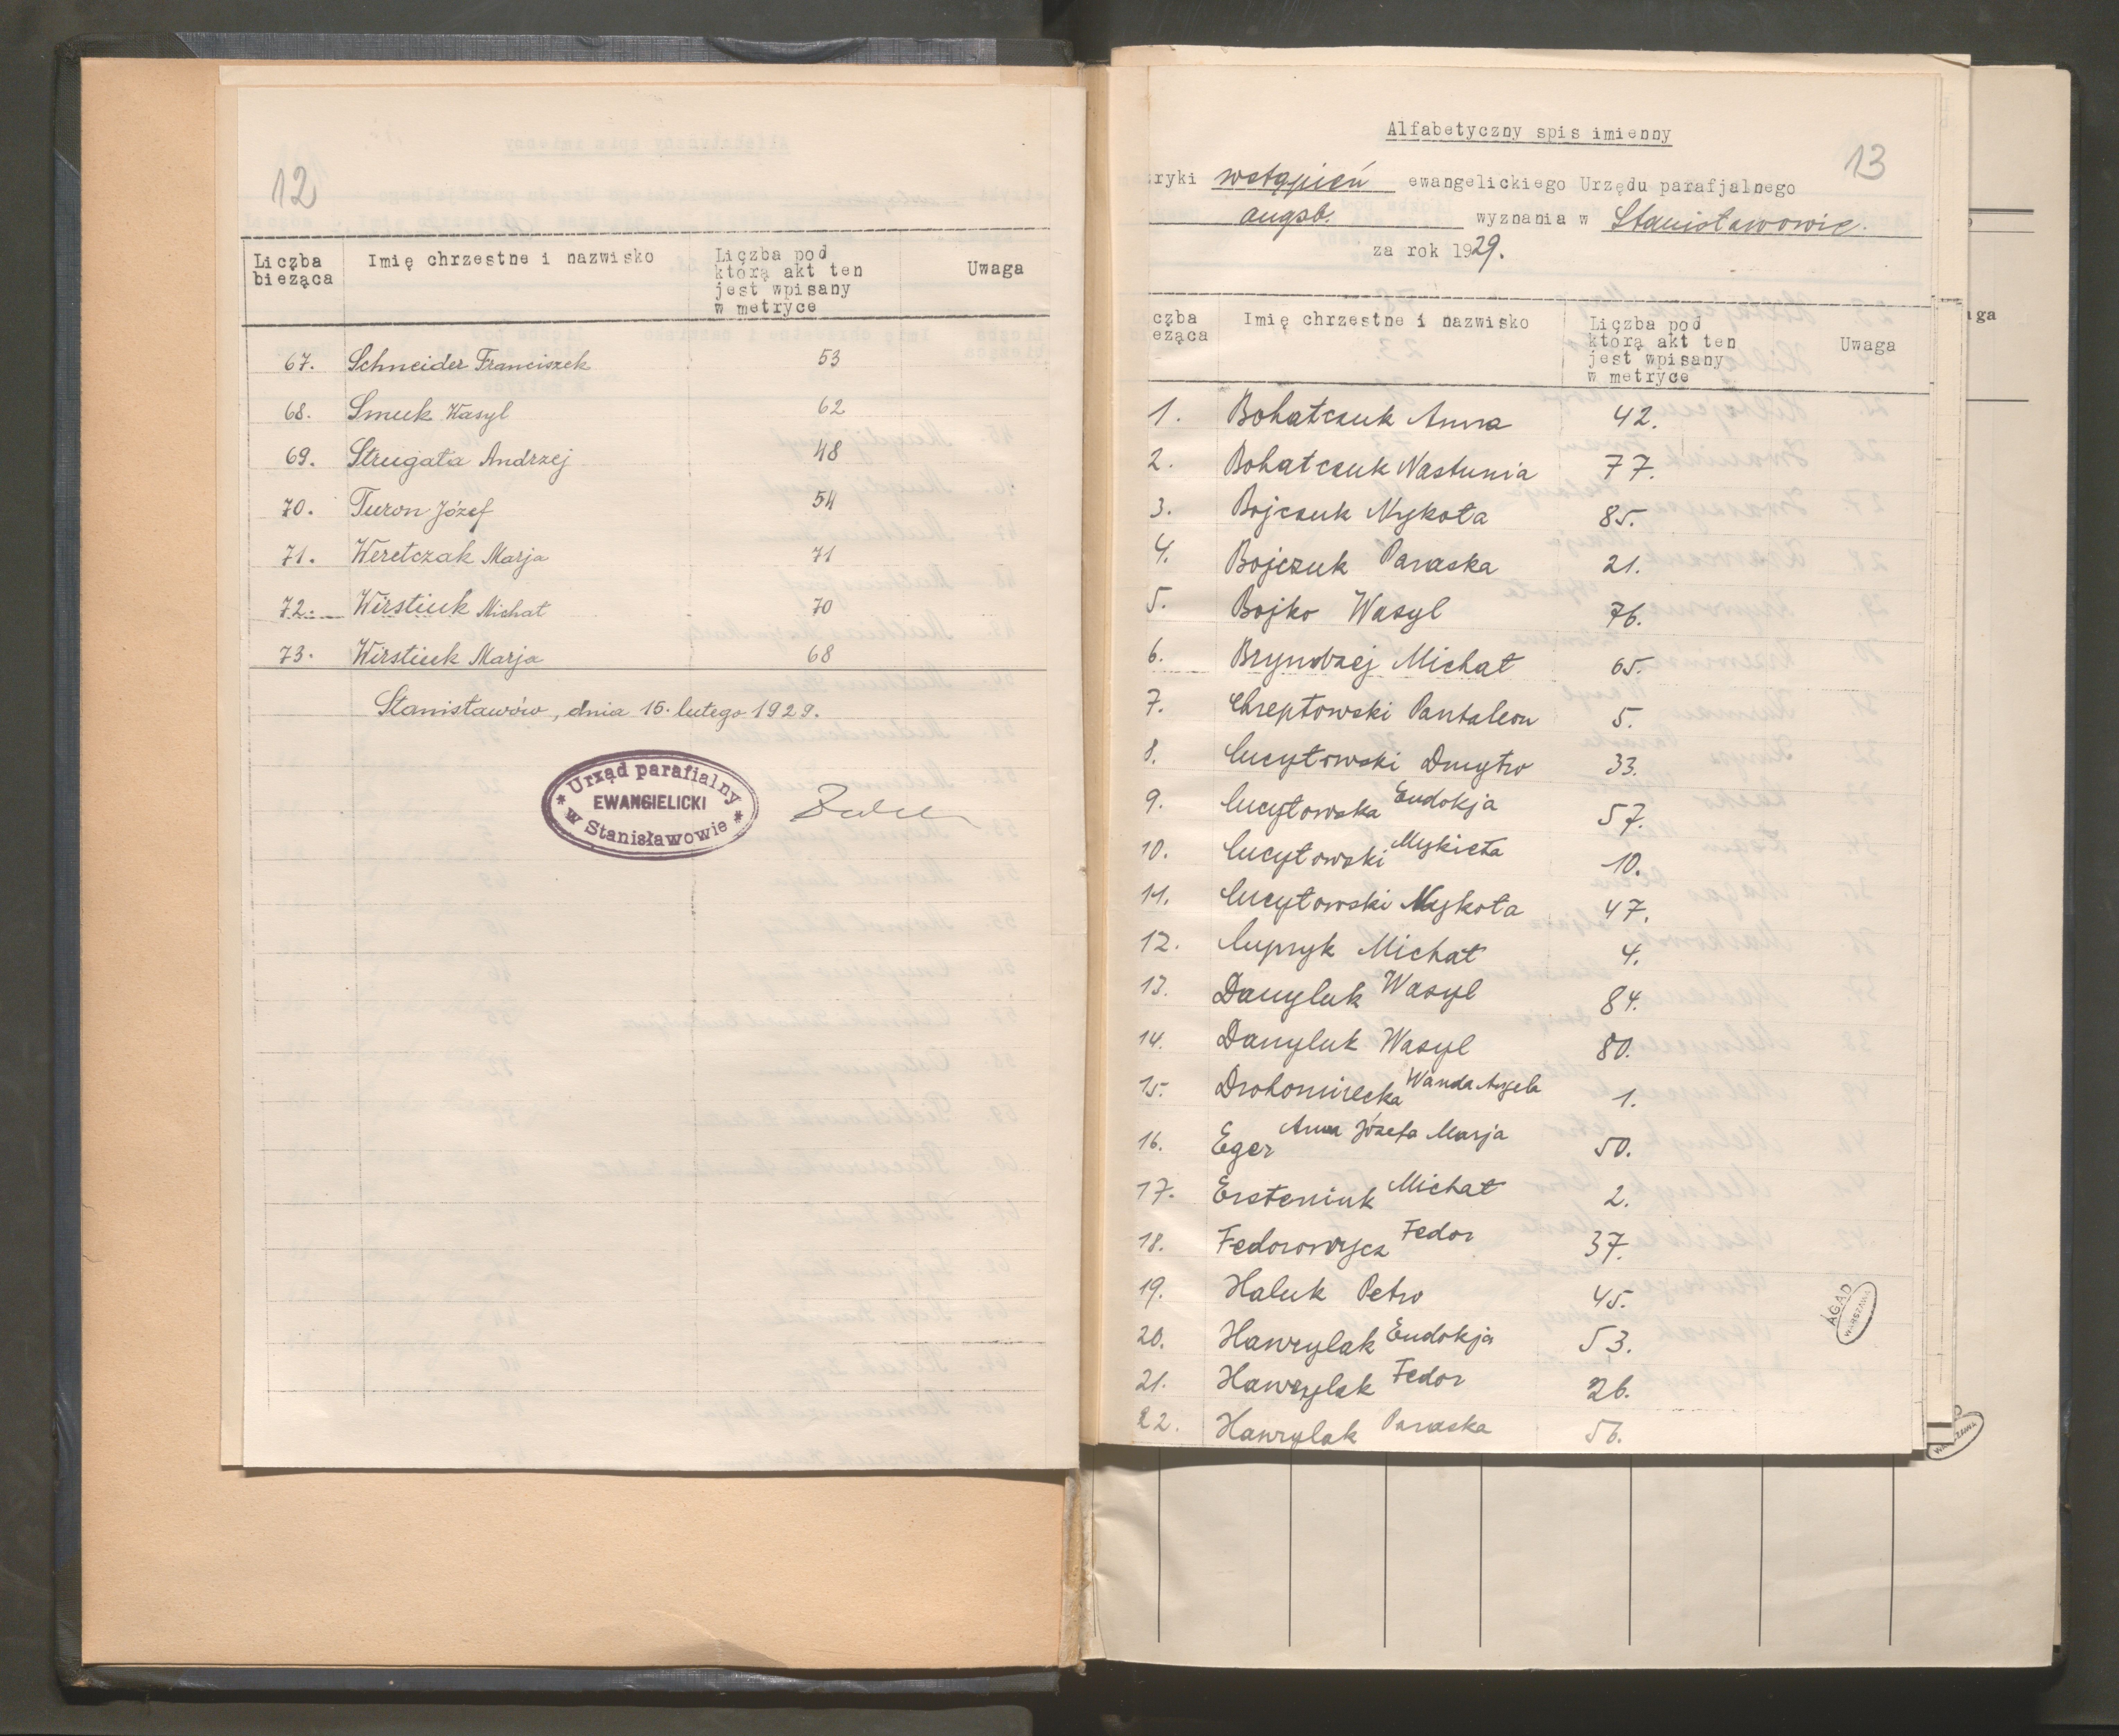 12
Liczba bieżąca
Imię chrzestne i nazwisko
Liczba pod którą akt ten jest wpisany w metryce
Uwaga
67. Schneider Franciszek 53
68. Smuk Wasyl 62
69. Strugała Andrzej 48
70. Turon Józef 54
71. Weretczak Marja 71
72. Wirstiuk Michał 70
73. Wirstiuk Marja 68
Stanisławów, dnia 15. lutego 1929.
* Urząd parafialny *
EWANGIELICKI
w Stanisławowie
13
Alfabetyczny spis imienny
ryki wstąpień ewangelickiego Urzędu parafjalnego
augsb. wyznania w Stanisławowie.
za rok 1929.
czba eżąca
Imię chrzestne i nazwisko
Liczba pod którą akt ten jest wpisany w metryce
Uwaga
1. Bohatczuk Anna 42.
2. Bohatczuk Nastunia 77.
3. Bojczuk Mykoła 85.
4. Bojczuk Paraska 21.
5. Bojko Wasyl 76.
6. Bryndzej Michał 65.
7. Chreptowski Pantaleon 5.
8. Cucyłowski Dmytro 33.
9. Cucyłowska Eudokja 57.
10. Cucyłowski Mykieta 10.
11. Cucyłowski Mykoła 47.
12. Cupryk Michał 4.
13. Danyluk Wasyl 84.
14. Danyluk Wasyl 80.
15. Drohomirecka Wanda Angela 1.
16. Eger Anna Józefa Marja 50.
17. Ersteniuk Michał 2.
18. Fedorowycz Fedor 37.
19. Haluk Petro 45.
20. Hawrylak Eudokja 53.
21. Hawrylak Fedor 26.
22. Hawrylak Paraska 56.
AGAD
WARSZAWA
aga